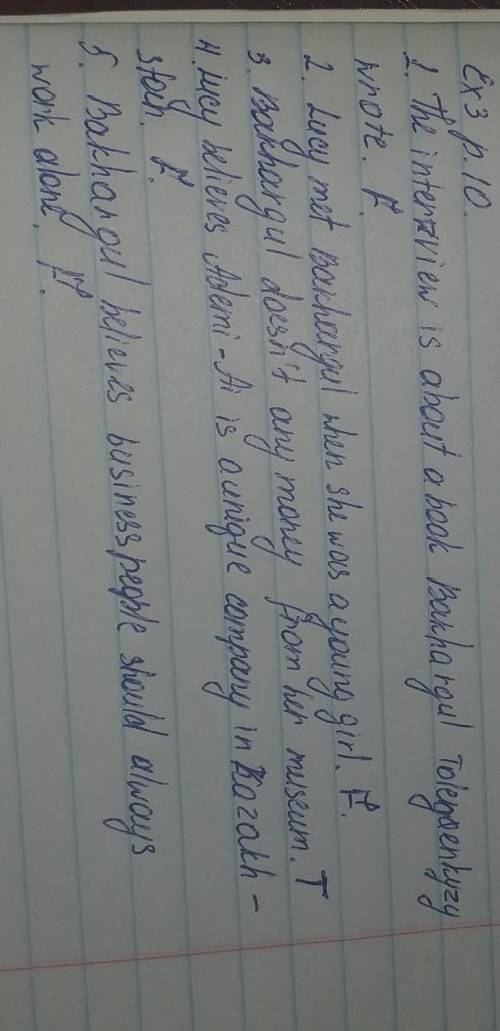 Ex3 p.10.
1. The interview is about a book Bakhargul Tolegenkyzy
wrote. F.
2. Lucy met Bakhargul when she was a young girl. F.
3. Bakhargul doesn't any money from her museum. T
4. Lucy believes Ademi-Ai is a unique company in Kazakh-
stan. F.
5. Bakhargul believes businesspeople should always
work alone. F.